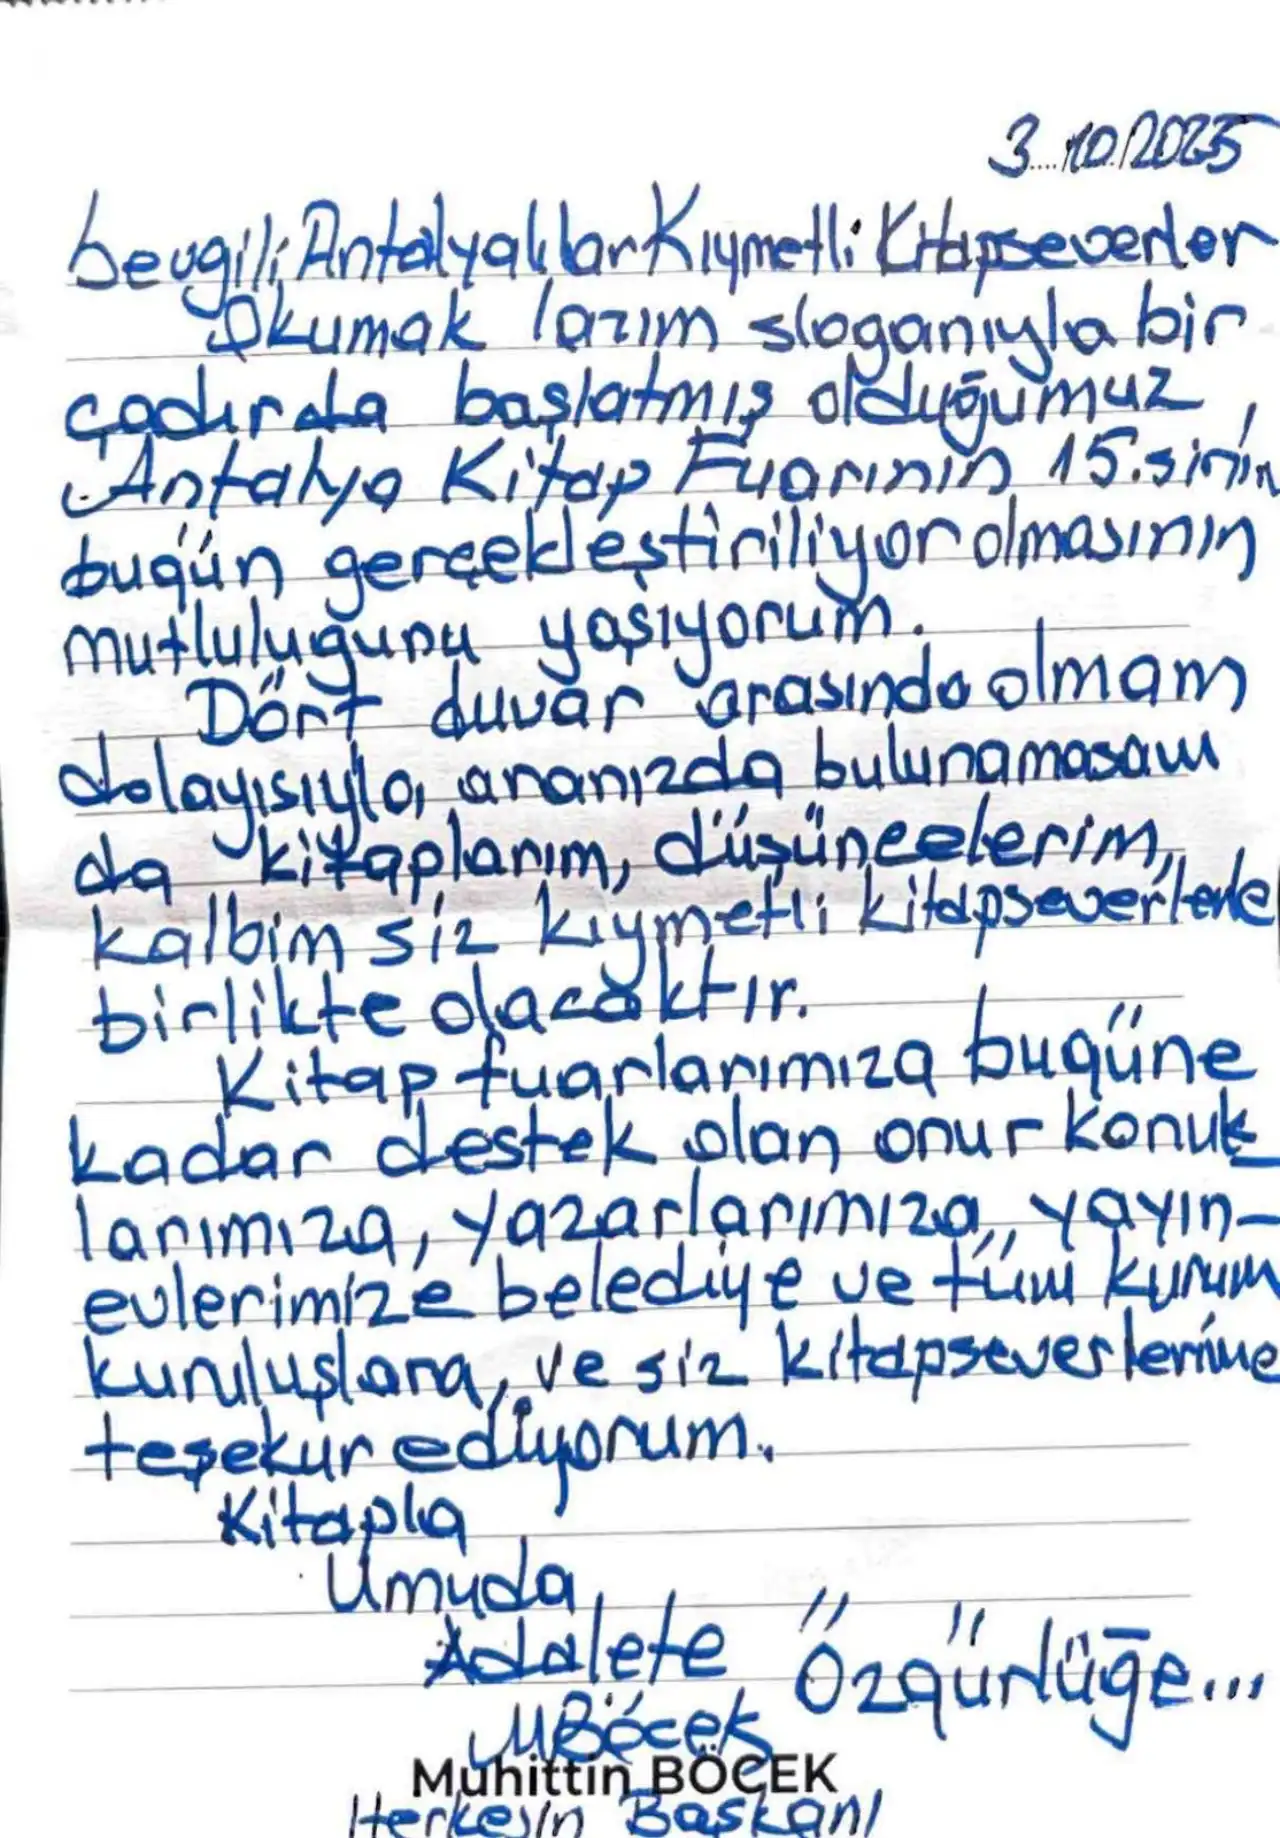 3.10.2025
Sevgili Antalyalılar Kıymetli Kitapseverler
Okumak lazım sloganıyla bir
çadırda başlatmış olduğumuz,
Antalya Kitap Fuarının 15.sinin
bugün gerçekleştiriliyor olmasının
mutluluğunu yaşıyorum.
Dört duvar arasında olmam
dolayısıyla, aranızda bulunamasam
da kitaplarım, düşüncelerim,
kalbim siz kıymetli kitapseverlerle
birlikte olacaktır.
Kitap fuarlarımıza bugüne
kadar destek olan onur konuk-
larımıza, yazarlarımıza, yayın-
evlerimize belediye ve tüm kurum
kuruluşlara, ve siz kitapseverlerime
teşekür ediyorum.
Kitapla
Umuda
Adalete Özgürlüğe...
MBöcek
Muhittin BÖCEK
Herkesin Başkanı